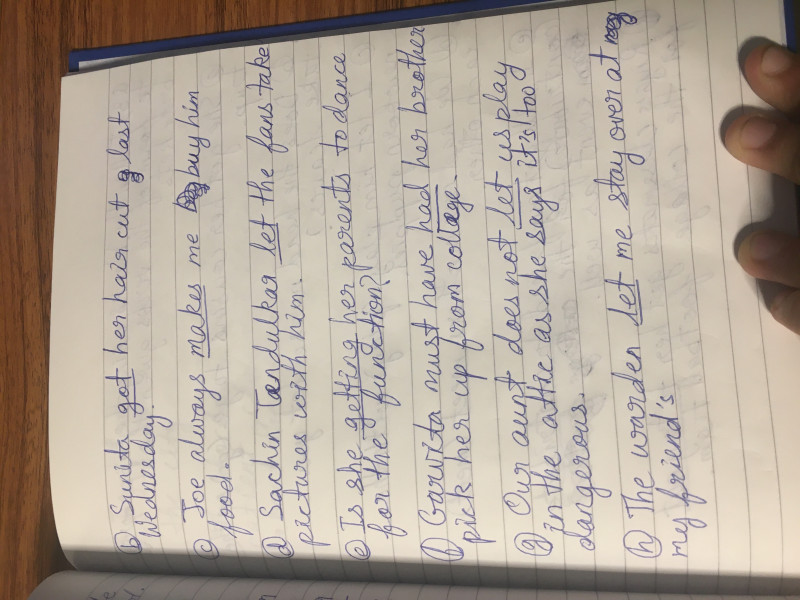 b) Sunita got her hair cut last
Wednesday.
c) Joe always makes me buy him
food.
d) Sachin Tendulkar let the fans take
pictures with him.
e) Is she getting her parents to dance
for the function?
f) Garvita must have had her brother
pick her up from collage.
g) Our aunt does not let us play
in the attic as she says it's too
dangerous.
h) The warden let me stay over at
my friend's